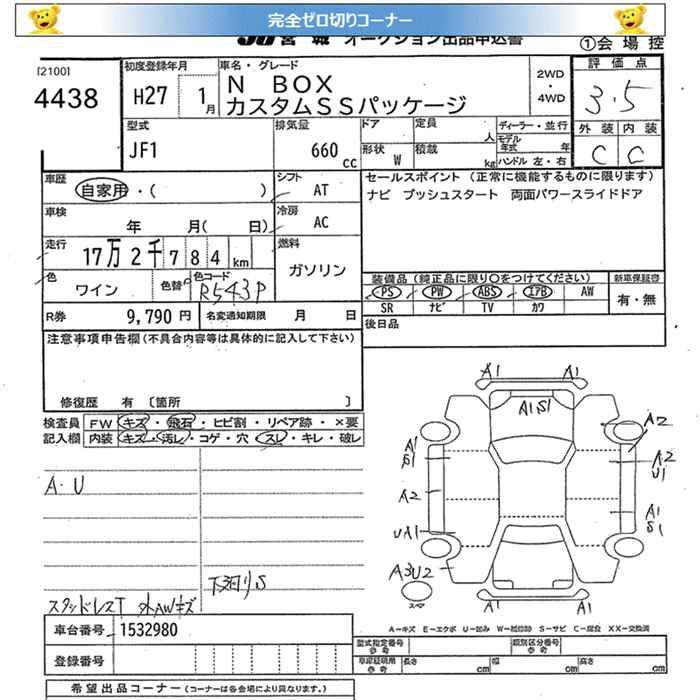 完全ゼロ切りコーナー
JU 宮城 オークション出品申込書
①会場控
[2100]
4438
初度登録年月
H27 1月
車名・グレード
N BOX
カスタムSSパッケージ
2WD
・
4WD
評価点
3.5
外装 内装
C C
型式
JF1
排気量
660 cc
ドア
形状 W
定員 人
積載 kg
ディーラー・並行
モデル年式 年
ハンドル 左・右
車歴
自家用・( )
シフト
AT
車検
年 月( 日)
冷房
AC
走行
17万2千784km
燃料
ガソリン
色
ワイン
色替
色コード
R543P
R券 9,790円
名変通知期限 月 日
セールスポイント (正常に機能するものに限ります)
ナビ プッシュスタート 両面パワースライドドア
装備品 (純正品に限り○をつけてください)
新車保証書
PS PW ABS エアB AW
SR ナビ TV カワ
有・無
後日品
注意事項申告欄(不具合内容等は具体的に記入して下さい)
修復歴 有 〔箇所 〕
検査員
記入欄
FW キズ・飛石・ヒビ割・リペア跡・×要
内装 キズ・汚レ・コゲ・穴・スレ・キレ・破レ
A・U
下廻りS
スタッドレスT 外AWキズ
A1 A1
A1S1
A1
S1
A2
UA1
A3U2
A2
A2
U1
A1
S1
A1 A1
スペア
A-キズ E-エクボ U-凹み W-補修跡 S-サビ C-腐食 XX-交換済
車台番号 1532980
登録番号
型式指定番号
参考
類別区分番号
参考
車庫証明用
参考
長さ cm
幅 cm
高さ cm
希望出品コーナー (コーナーは各会場により異なります。)